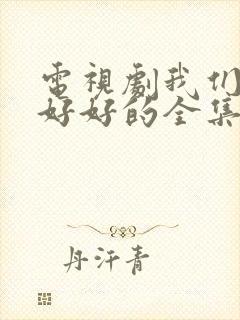 電視劇我们
好好的全集
丹汗青